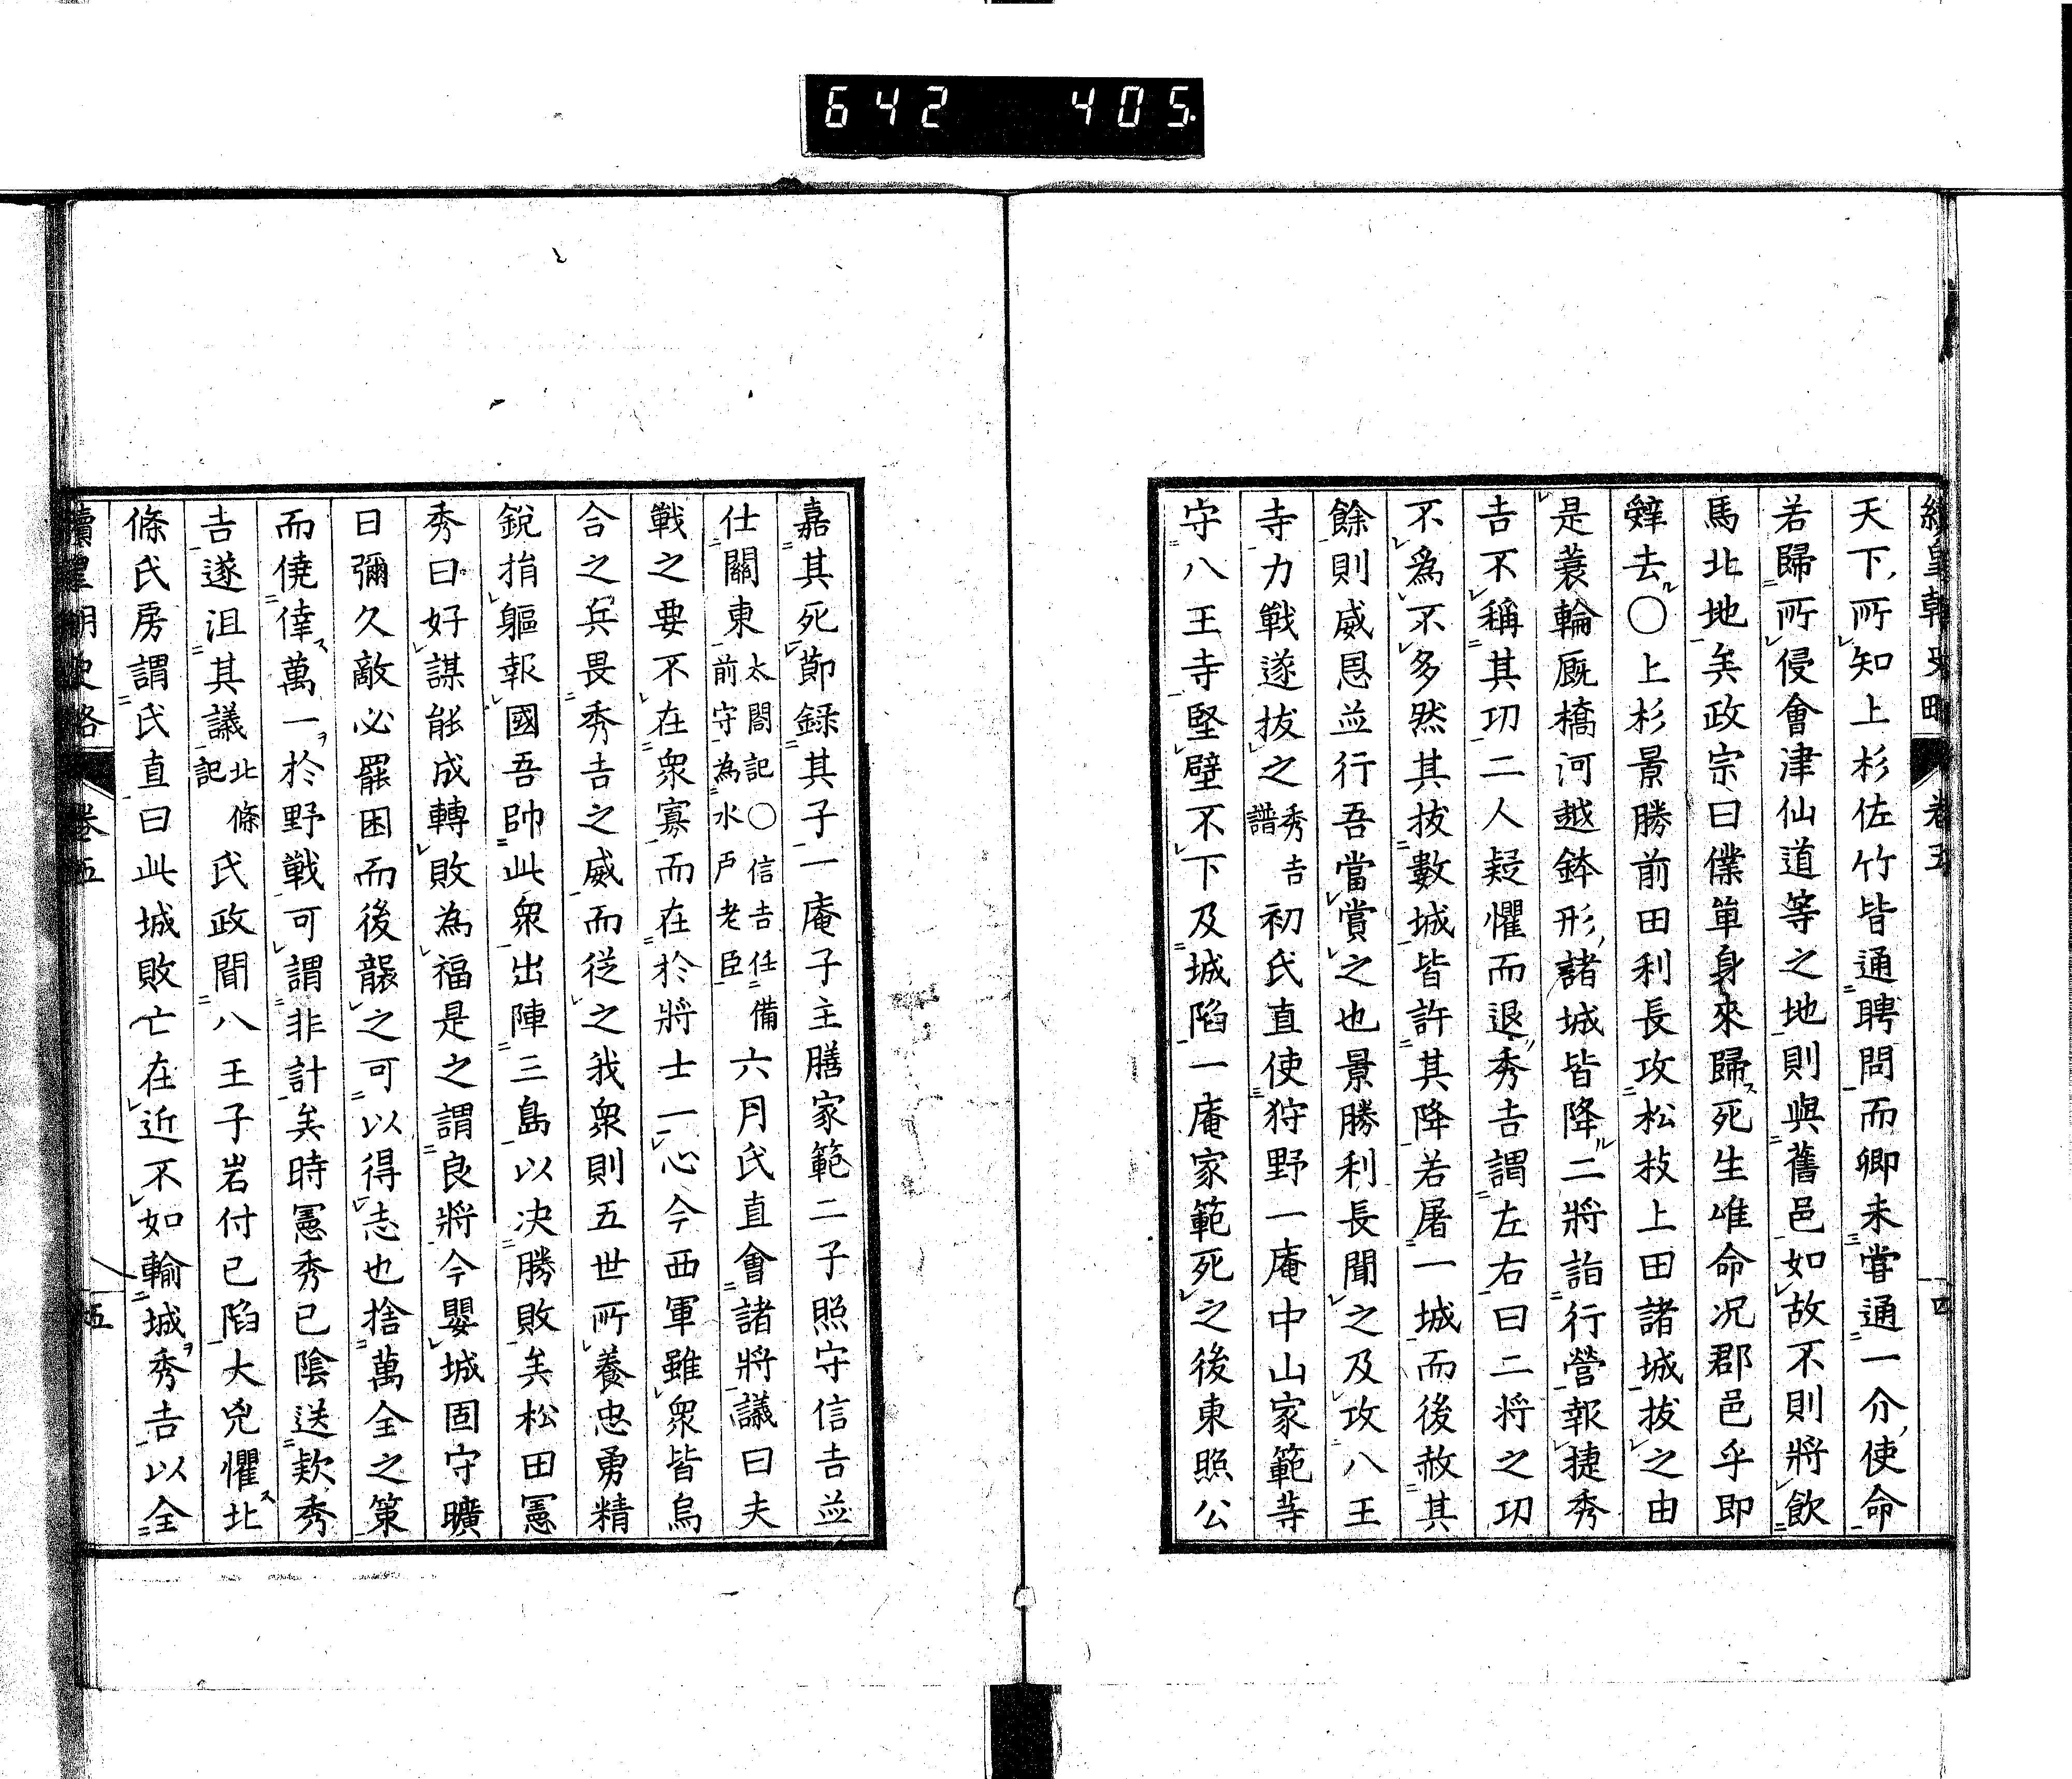 642 405
續皇朝史略 卷五 四
天下所知上杉佐竹皆通聘問而卿未嘗通一介使命
若歸所侵會津仙道等之地則與舊邑如故不則將飲
馬北地矣政宗曰僕單身來歸死生唯命況郡邑乎即
辭去〇上杉景勝前田利長攻松枝上田諸城拔之由
是蓑輪厩橋河越鉢形諸城皆降二將詣行營報捷秀
吉不稱其功二人疑懼而退秀吉謂左右曰二将之功
不爲不多然其拔數城皆許其降若屠一城而後赦其
餘則威恩並行吾當賞之也景勝利長聞之及攻八王
寺力戰遂拔之秀吉譜初氏直使狩野一庵中山家範等
守八王寺堅壁不下及城陷一庵家範死之後東照公
嘉其死節録其子一庵子主膳家範二子照守信吉並
仕關東太閤記〇信吉任備前守為水戸老臣六月氏直會諸將議曰夫
戰之要不在衆寡而在於將士一心今西軍雖衆皆烏
合之兵畏秀吉之威而從之我衆則五世所養忠勇精
銳捐軀報國吾帥此衆出陣三島以决勝敗矣松田憲
秀曰好謀能成轉敗為福是之謂良將今嬰城固守曠
日彌久敵必罷困而後襲之可以得志也捨萬全之策
而僥倖萬一於野戰可謂非計矣時憲秀已陰送款秀
吉遂沮其議北條記氏政聞八王子岩付已陷大兇懼北
條氏房謂氏直曰此城敗亡在近不如輸城秀吉以全
續皇朝史略 卷五 五